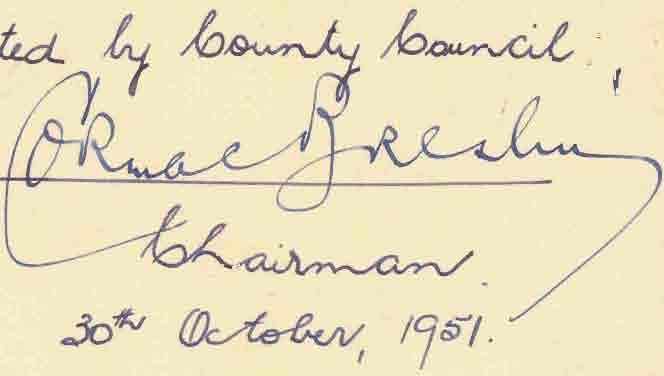 ted by County Council,
Cormac Breslin
Chairman.
30th October, 1951.